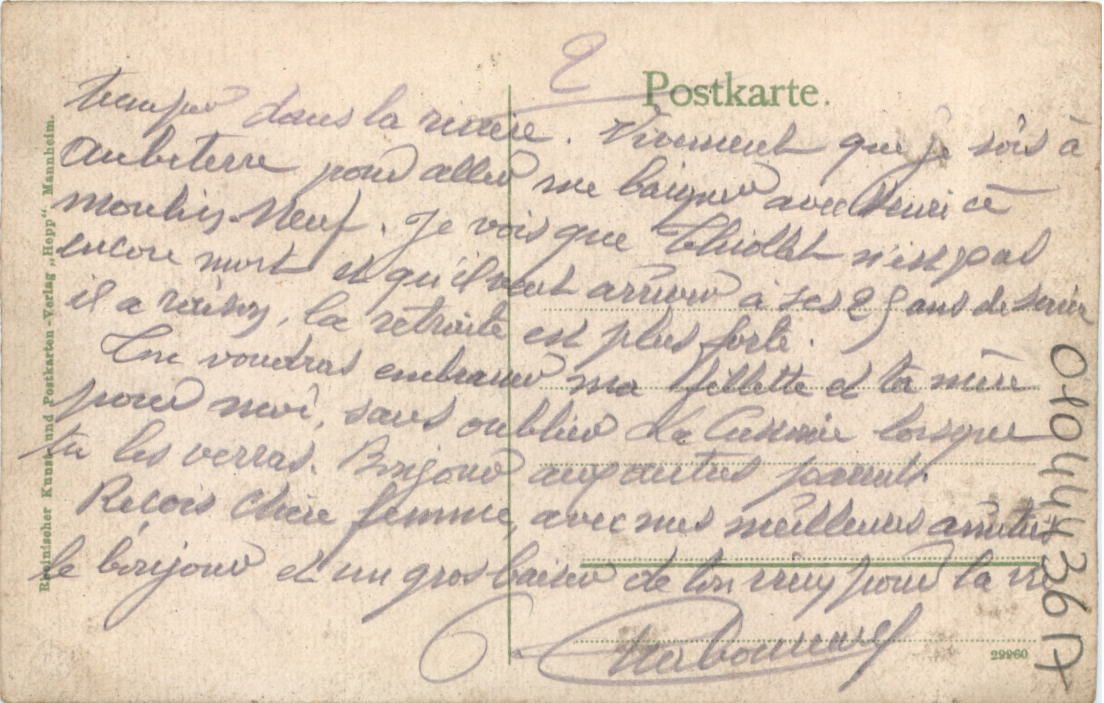 2
Postkarte.
temps dans la rivière. Vivement que je sois à
Aubeterre pour aller me baigner avec Henri à
Moulin-Neuf. Je vois que Thiollet n'est pas
encore mort et qu'il veut arriver à ses 25 ans de service
il a raison, la retraite est plus forte.
Tu voudras embrasser ma fillette et ta mère
pour moi, sans oublier lorsque
tu les verras. Bonjour aux autres parents.
Reçois Chère femme, avec mes meilleures amitiés
le bonjour et un gros baiser de ton pour la vie
Rheinischer Kunst- und Postkarten-Verlag „Hepp“, Mannheim.
22960